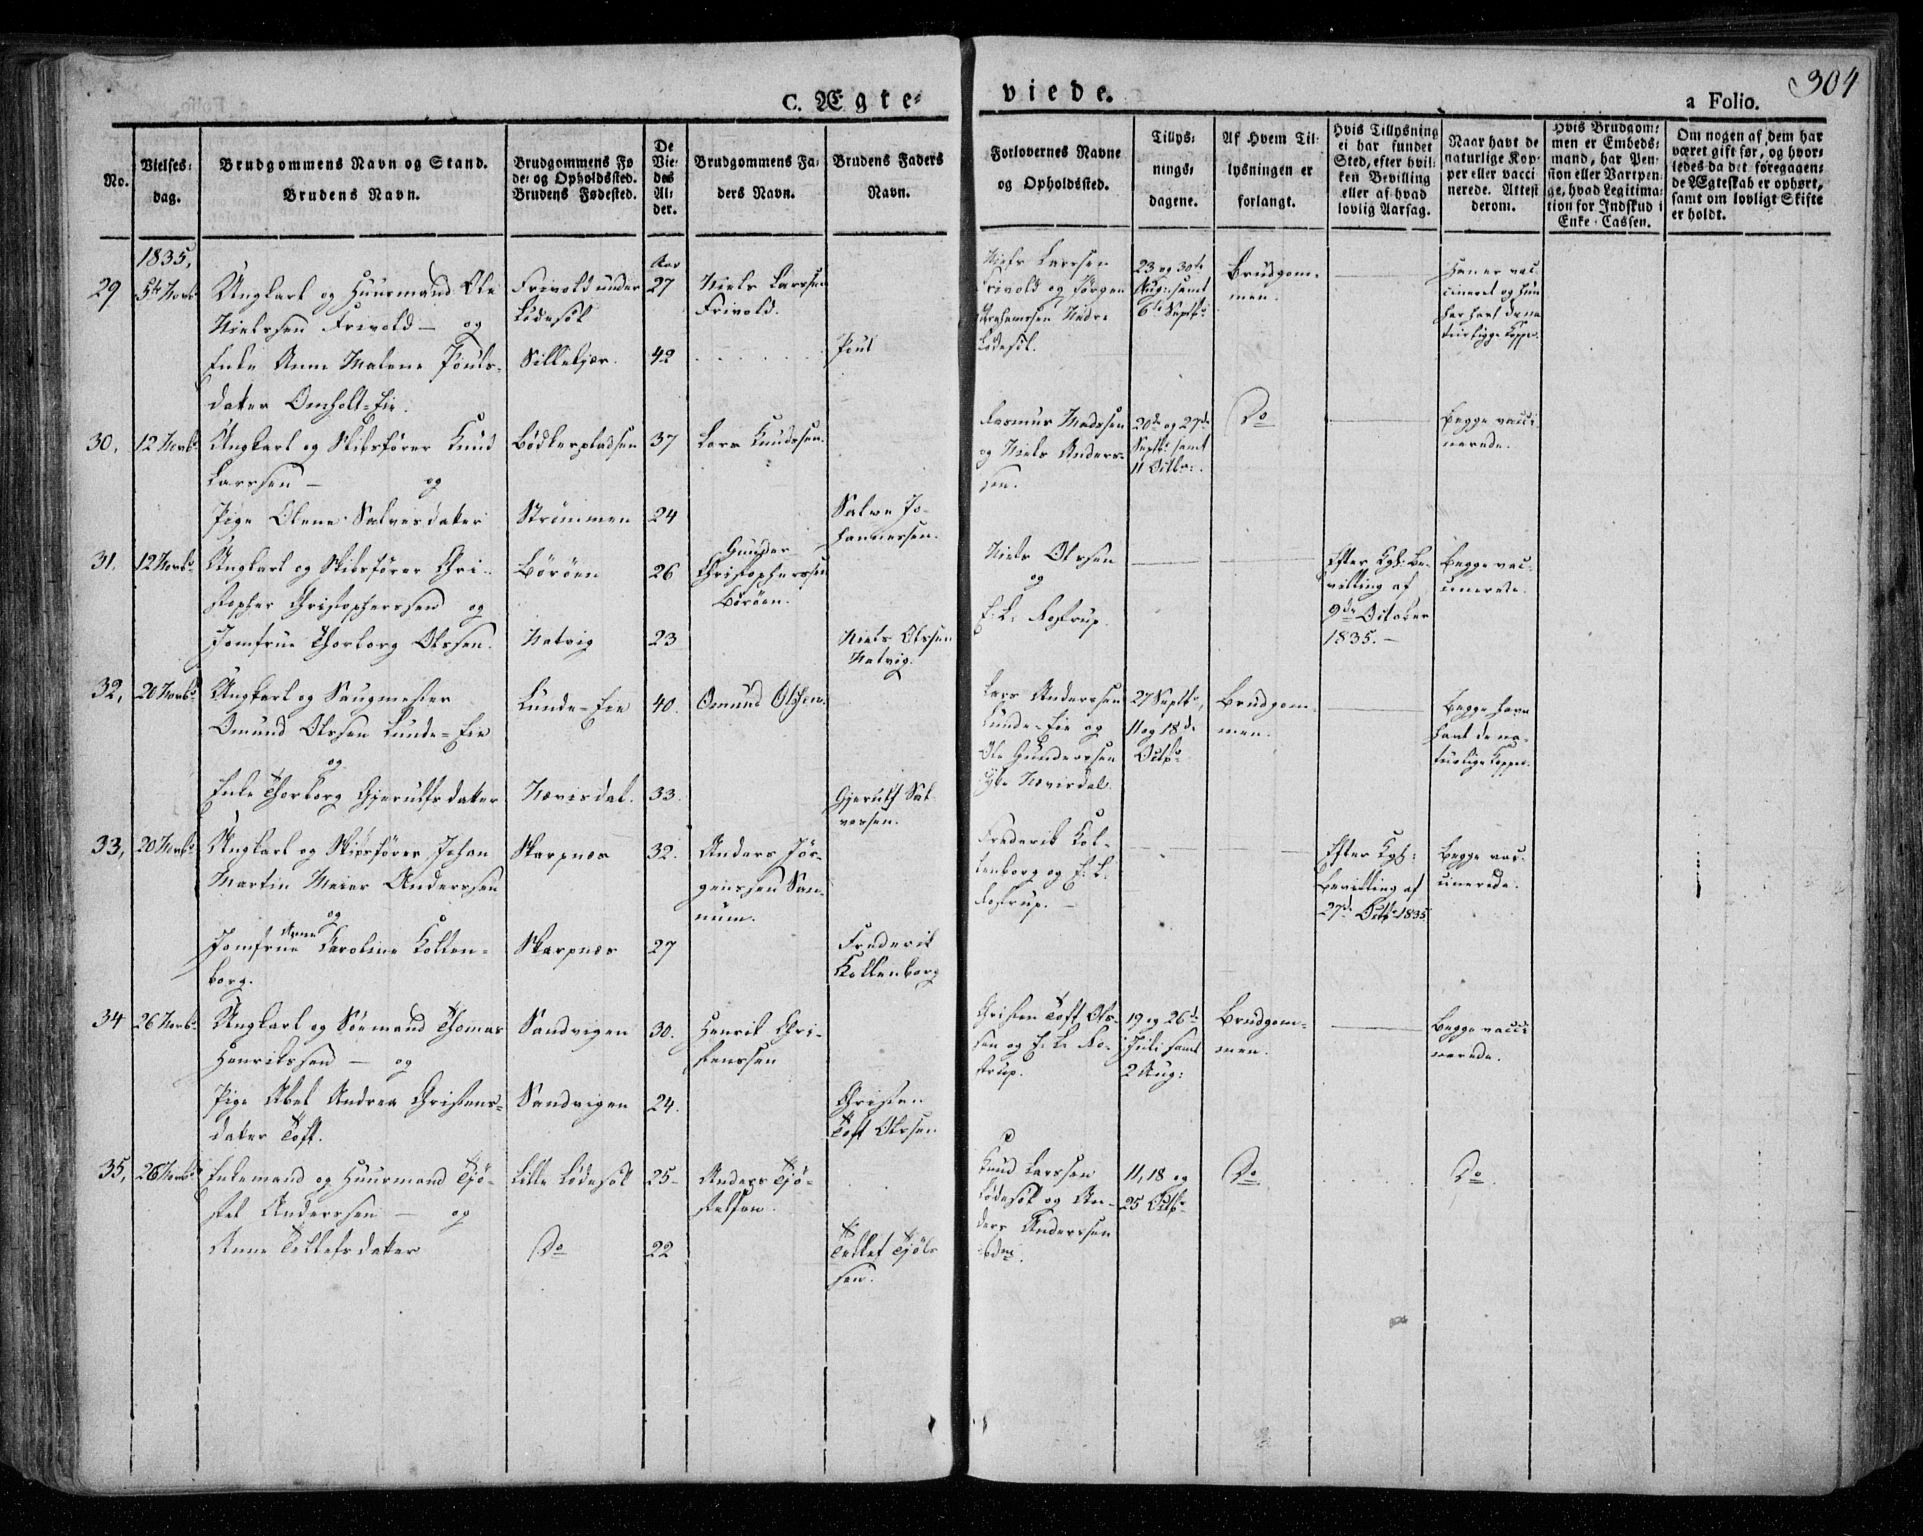 304
C. Ægte-
viede.
a Folio.
No.
Vielses-
dag.
Brudgommens Navn og Stand.
Brudens Navn.
Brudgommens Fø
de- og Opholdssted.
Brudens Fødested.
De
Vie-
des
Al-
der.
Brudgommens Fa-
ders Navn.
Brudens Faders
Navn.
Forlovernes Navne
og Opholdssted.
Tillys-
nings-
dagene.
Af Hvem Til-
lysningen er
forlangt.
Hvis Tillysning
ei har fundet
Sted, efter hvil-
ken Bevilling
eller af hvad
lovlig Aarsag.
Naar havt de
naturlige Kop-
per eller vacci
nerede. Attest
derom.
Hvis Brudgom-
men er Embeds-
mand, har Pen-
sion eller Vartpen-
ge, hvad Legitima-
tion for Indskud i
Enke-Cassen.
Om nogen af dem har
været gift før, og hvor-
ledes da det foregaaen-
de Ægteskab er ophørt,
samt om lovligt Skifte
er holdt.
1835,
29
5te Novbr
Ungkarl og Huusmand Ole
Nielssen Frivold — og
Enke Anne Malene Pouls-
dater Omholt-Eie.
Frivold under
Lødesøl
Sillekjær.
Aar
27
42
Niels Larssen
Frivold.
Poul
Niels Larssen
Frivold og Jørgen
Abrahamssen Nedre
Lødesøl.
23 og 30te
Aug: samt
6te Septbr
Brudgom-
men.
Han er vac-
cineret og hun
har havt de na
turlige Kopper.
30,
12 Novbr
Ungkarl og Skibsfører Knud
Larssen — og
Pige Olene Salvesdater
Bødkerpladsen
Strømmen
37
24
Lars Knudssen.
Salve Jo-
hannessen.
Rasmus Madssen
og Niels Anders-
sen.
20de og 27de
Septbr samt
11 Octbr.
Do
Begge vacci
nerede.
31.
12 Novbr
Ungkarl og Skibsfører Chri-
stopher Christopherssen og
Jomfrue Thorborg Olssen.
Børøen
Natvig
26
23
Gunder
Christopherssen
Børøen.
Niels Olssen
Natvig.
Niels Olssen
og
E. L. Rostrup.
Efter Kgl: Be-
villing af
9de October
1835. —
Begge vac-
cinerede.
32,
20 Novbr
Ungkarl og Saugmester
Omund Olssen Lunde-Eie
og
Enke Thorborg Gjerulfsdater
Lunde-Eie
Nævisdal.
40.
33.
Omund Olssen.
Gjerulf Sal
vessen.
Lars Anderssen
Lunde-Eie og
Ole Gunderssen
Nævisdal
27 Septbr,
11 og 18de
Octbr
Brudgom-
men.
Begge have
havt de na-
turlige Kopper.
33,
20 Novbr
Ungkarl og Skibsfører Johan
Martin Meier Anderssen
og
Jomfrue Anne Karoline Kollen-
borg.
Skarpnes
Skarpnes
32.
27
Anders Jør-
genssen San-
num.
Frederik
Kollenborg
Frederik Kol-
lenborg og E. L.
Rostrup. —
Efter Kgl:
Bevilling af
27de Octbr 1835
Begge vac-
cinerede.
34
26 Novbr
Ungkarl og Sømand Thomas
Henrikssen — og
Pige Abel Andrea Christens-
dater Toft.
Sandvigen
Sandvigen
30.
24.
Henrik Chri-
stenssen
Christen
Toft Olssen
Christen Toft Ols-
sen og E. L. Ro-
strup.
19 og 26de
Juli samt
2 Aug:
Brudgom-
men.
Begge vacci
nerede.
35,
26 Novbr
Enkemand og Huusmand Tjø-
stel Anderssen — og
Anne Tellefsdater
Lille Lødesøl
Do
25-
22
Anders Tjø-
stelsen.
Tellef Tjøls
sen.
Knud Larssen
Lødesøl og An-
ders Anderssen
ibdm.
11, 18 og
25 Octbr
Do
Do